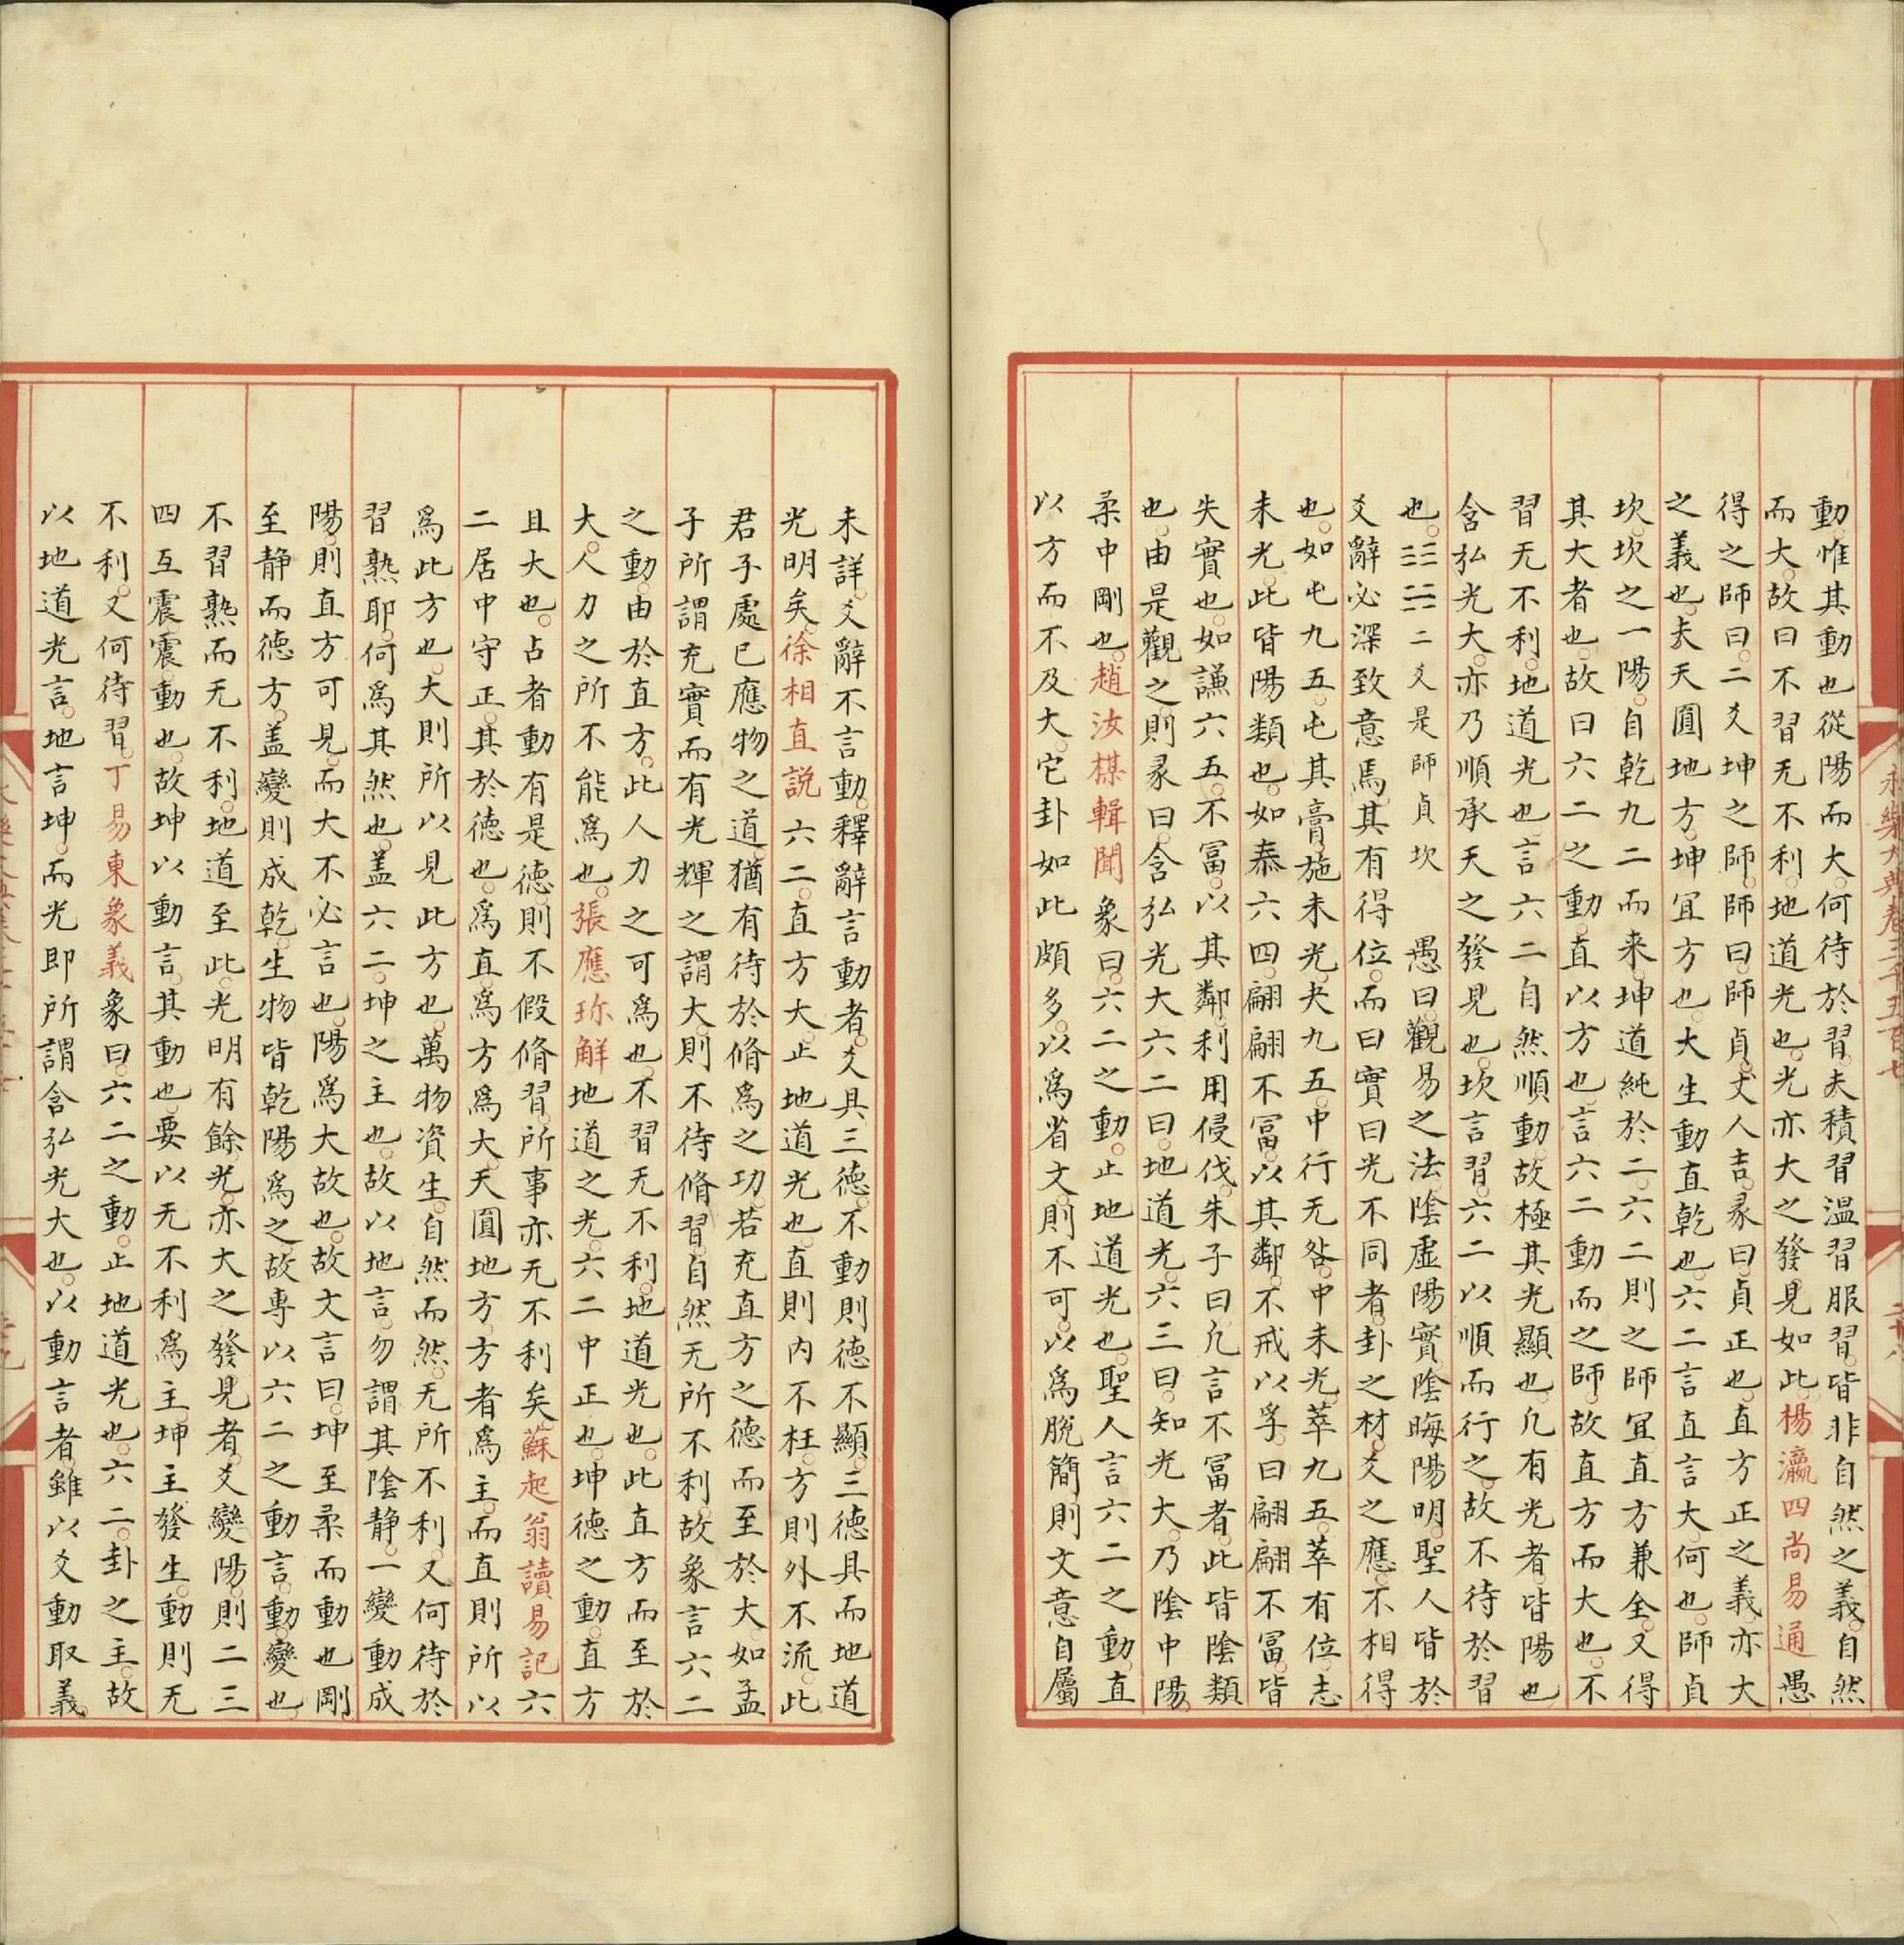 動惟其動也從陽而大何待於習夫積習溫習服習皆非自然之義自然
而大故曰不習无不利地道光也光亦大之發見如此楊瀛四尚易通愚
得之師曰二爻坤之師師曰師貞丈人吉彖曰貞正也直方正之義亦大
之義也夫天圓地方坤宜方也大生動直乾也六二言直言大何也師貞
坎坎之一陽自乾九二而来坤道純於二六二則之師宜直方兼全又得
其大者也故曰六二之動直以方也言六二動而之師故直方而大也不
習无不利地道光也言六二自然順動故極其光顯也凡有光者皆陽也
含弘光大亦乃順承天之發見也坎言習六二以順而行之故不待於習
也二爻是師貞坎愚曰觀易之法陰虛陽實陰晦陽明聖人皆於
爻辭必深致意焉其有得位而曰實曰光不同者卦之材爻之應不相得
也如屯九五屯其膏施未光夬九五中行无咎中未光萃九五萃有位志
未光此皆陽類也如泰六四翩翩不富以其鄰不戒以孚曰翩翩不富皆
失實也如謙六五不富以其鄰利用侵伐朱子曰凡言不富者此皆陰類
也由是觀之則彖曰含弘光大六二曰地道光六三曰知光大乃陰中陽
柔中剛也趙汝楳輯聞象曰六二之動止地道光也聖人言六二之動直
以方而不及大它卦如此頗多以為省文則不可以為脫簡則文意自屬
未詳爻辭不言動釋辭言動者爻具三德不動則德不顯三德具而地道
光明矣徐相直說六二直方大止地道光也直則内不枉方則外不流此
君子處已應物之道猶有待於脩為之功若充直方之德而至於大如孟
子所謂充實而有光輝之謂大則不待脩習自然无所不利故象言六二
之動由於直方此人力之可為也不習无不利地道光也此直方而至於
大人力之所不能為也張應珎解地道之光六二中正也坤德之動直方
且大也占者動有是德則不假脩習所事亦无不利矣蘇起翁讀易記六
二居中守正其於德也為直為方為大天圓地方方者為主而直則所以
為此方也大則所以見此方也萬物資生自然而然无所不利又何待於
習熟耶何為其然也盖六二坤之主也故以地言勿謂其陰静一變動成
陽則直方可見而大不必言也陽為大故也故文言曰坤至柔而動也剛
至静而德方盖變則成乾生物皆乾陽為之故專以六二之動言動變也
不習熟而无不利地道至此光明有餘光亦大之發見者爻變陽則二三
四互震震動也故坤以動言其動也要以无不利為主坤主發生動則无
不利又何待習丁易東象義象曰六二之動止地道光也六二卦之主故
以地道光言地言坤而光即所謂含弘光大也以動言者雖以爻動取義